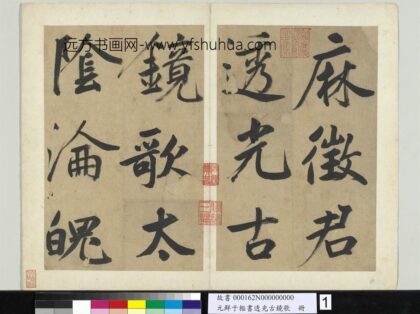 麻徵君
透光古
鏡歌太
陰淪魄
远方书画网-www.yfshuhua.com
故書 000162N000000000
元鮮于樞書透光古鏡歌 冊
1